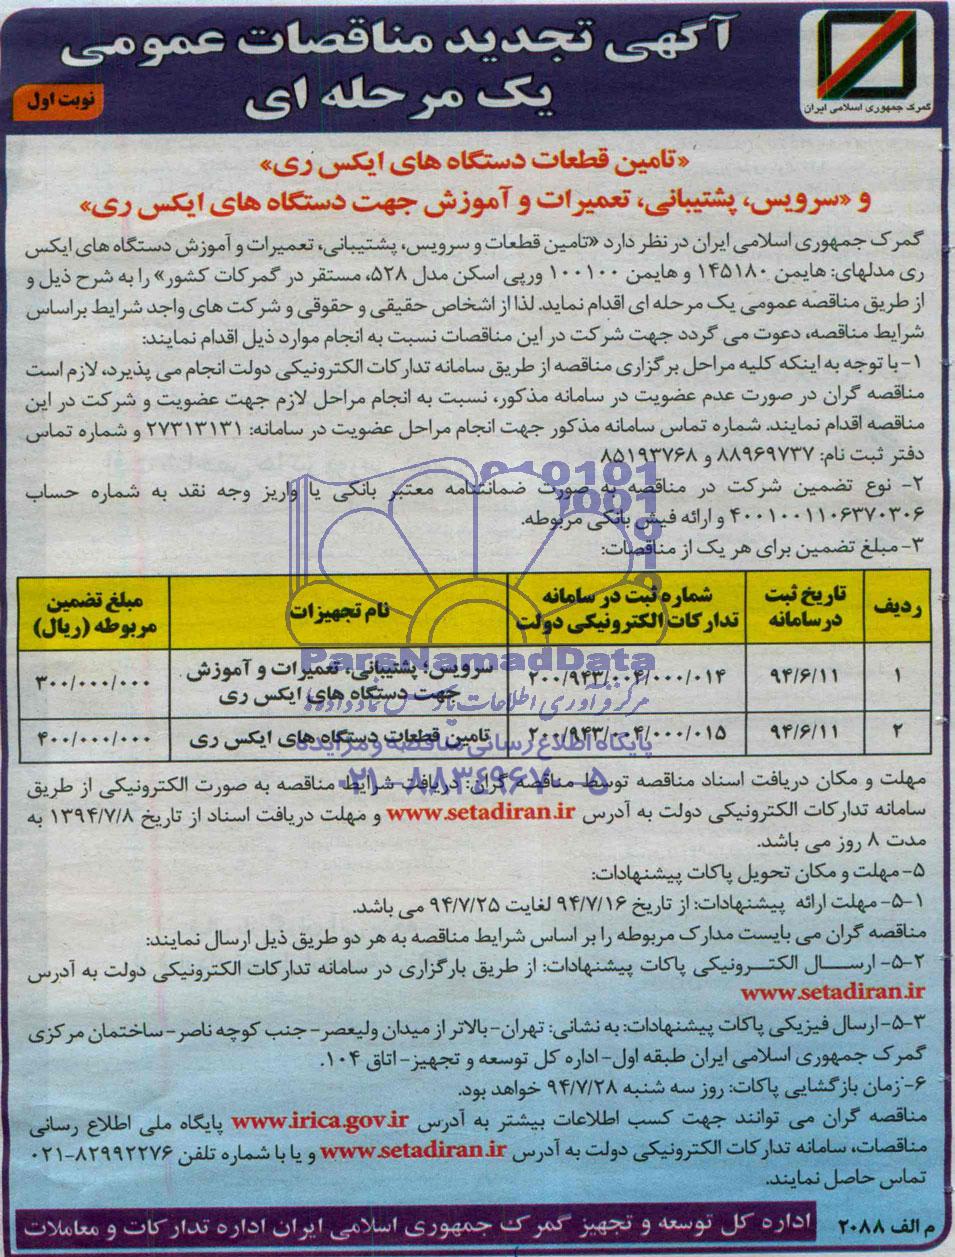 آگهی تجدید مناقصات عمومی
یک مرحله ای
نوبت اول
گمرک جمهوری اسلامی ایران
«تامین قطعات دستگاه های ایکس ری»
و «سرویس، پشتیبانی، تعمیرات و آموزش جهت دستگاه های ایکس ری»
گمرک جمهوری اسلامی ایران در نظر دارد «تامین قطعات و سرویس، پشتیبانی، تعمیرات و آموزش دستگاه های ایکس
ری مدلهای: هایمن ۱۴۵۱۸۰ و هایمن ۱۰۰۱۰۰ ورپی اسکن مدل ۵۲۸، مستقر در گمرکات کشور» را به شرح ذیل و
از طریق مناقصه عمومی یک مرحله ای اقدام نماید. لذا از اشخاص حقیقی و حقوقی و شرکت های واجد شرایط براساس
شرایط مناقصه، دعوت می گردد جهت شرکت در این مناقصات نسبت به انجام موارد ذیل اقدام نمایند:
۱- با توجه به اینکه کلیه مراحل برگزاری مناقصه از طریق سامانه تدارکات الکترونیکی دولت انجام می پذیرد، لازم است
مناقصه گران در صورت عدم عضویت در سامانه مذکور، نسبت به انجام مراحل لازم جهت عضویت و شرکت در این
مناقصه اقدام نمایند. شماره تماس سامانه مذکور جهت انجام مراحل عضویت در سامانه: ۲۷۳۱۳۱۳۱ و شماره تماس
دفتر ثبت نام: ۸۸۹۶۹۷۳۷ و ۸۵۱۹۳۷۶۸
۲- نوع تضمین شرکت در مناقصه به صورت ضمانتنامه معتبر بانکی یا واریز وجه نقد به شماره حساب
۴۰۰۱۰۰۱۱۰۶۳۷۰۳۰۶ و ارائه فیش بانکی مربوطه.
۳- مبلغ تضمین برای هر یک از مناقصات:
ردیف تاریخ ثبت درسامانه شماره ثبت در سامانه تدارکات الکترونیکی دولت نام تجهیزات مبلغ تضمین مربوطه (ریال)
۱ ۹۴/۶/۱۱ ۲۰۰/۹۴۳/۰۰۴/۰۰۰/۰۱۴ سرویس؛ پشتیبانی، تعمیرات و آموزش جهت دستگاه های ایکس ری ۳۰۰/۰۰۰/۰۰۰
۲ ۹۴/۶/۱۱ ۲۰۰/۹۴۳/۰۰۴/۰۰۰/۰۱۵ تامین قطعات دستگاه های ایکس ری ۴۰۰/۰۰۰/۰۰۰
ParsNamadData
مرکز فرآوری اطلاعات پارس نماد داده ها
پایگاه اطلاع رسانی مناقصه و مزایده
۰۲۱-۸۸۳۴۹۶۷۰-۵
مهلت و مکان دریافت اسناد مناقصه توسط مناقصه گران: دریافت شرایط مناقصه به صورت الکترونیکی از طریق
سامانه تدارکات الکترونیکی دولت به آدرس www.setadiran.ir و مهلت دریافت اسناد از تاریخ ۱۳۹۴/۷/۸ به
مدت ۸ روز می باشد.
۵- مهلت و مکان تحویل پاکات پیشنهادات:
۵-۱- مهلت ارائه پیشنهادات: از تاریخ ۹۴/۷/۱۶ لغایت ۹۴/۷/۲۵ می باشد.
مناقصه گران می بایست مدارک مربوطه را بر اساس شرایط مناقصه به هر دو طریق ذیل ارسال نمایند:
۵-۲- ارسال الکترونیکی پاکات پیشنهادات: از طریق بارگزاری در سامانه تدارکات الکترونیکی دولت به آدرس
www.setadiran.ir
۵-۳- ارسال فیزیکی پاکات پیشنهادات: به نشانی: تهران- بالاتر از میدان ولیعصر- جنب کوچه ناصر- ساختمان مرکزی
گمرک جمهوری اسلامی ایران طبقه اول- اداره کل توسعه و تجهیز- اتاق ۱۰۴.
۶- زمان بازگشایی پاکات: روز سه شنبه ۹۴/۷/۲۸ خواهد بود.
مناقصه گران می توانند جهت کسب اطلاعات بیشتر به آدرس www.irica.gov.ir پایگاه ملی اطلاع رسانی
مناقصات، سامانه تدارکات الکترونیکی دولت به آدرس www.setadiran.ir و یا با شماره تلفن ۸۲۹۹۲۲۷۶-۰۲۱
تماس حاصل نمایند.
م الف ۲۰۸۸
اداره کل توسعه و تجهیز گمرک جمهوری اسلامی ایران اداره تدارکات و معاملات